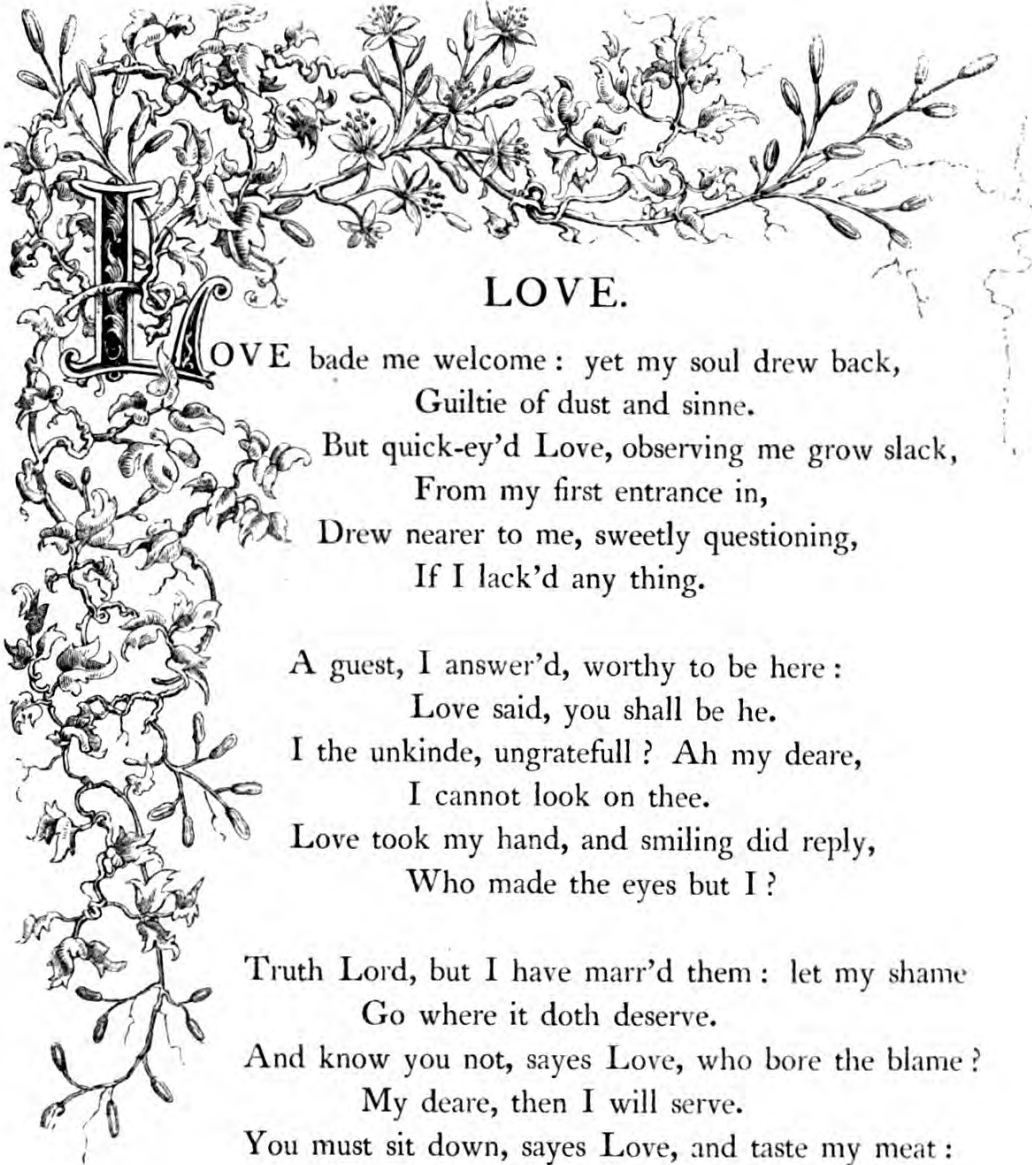 LOVE.
LOVE bade me welcome : yet my soul drew back,
Guiltie of dust and sinne.
But quick-ey'd Love, observing me grow slack,
From my first entrance in,
Drew nearer to me, sweetly questioning,
If I lack'd any thing.
A guest, I answer'd, worthy to be here :
Love said, you shall be he.
I the unkinde, ungratefull ? Ah my deare,
I cannot look on thee.
Love took my hand, and smiling did reply,
Who made the eyes but I ?
Truth Lord, but I have marr'd them : let my shame
Go where it doth deserve.
And know you not, sayes Love, who bore the blame ?
My deare, then I will serve.
You must sit down, sayes Love, and taste my meat :